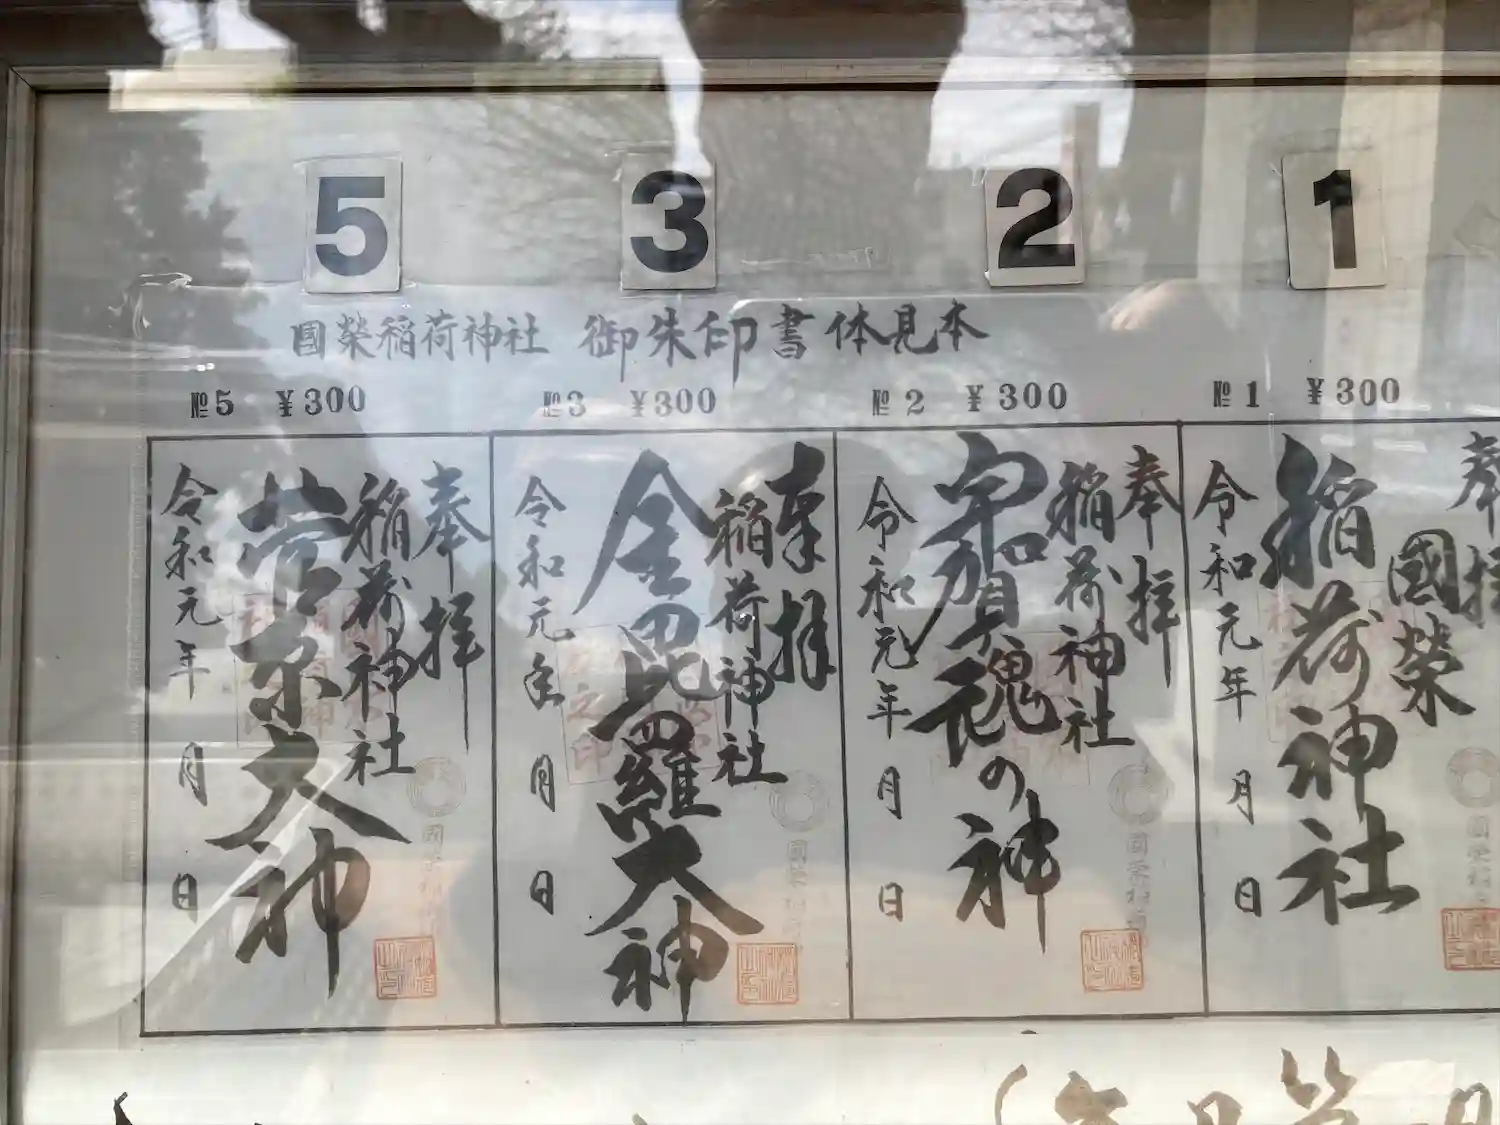 5 3 2 1
國榮稲荷神社 御朱印書体見本
№5 ¥300 №3 ¥300 №2 ¥300 №1 ¥300
奉拝
國榮
稲荷神社
令和元年 月 日
奉拝
稲荷神社
の神
令和元年 月 日
奉拝
稲荷神社
金毘羅大神
令和元年 月 日
奉拝
稲荷神社
大神
令和元年 月 日